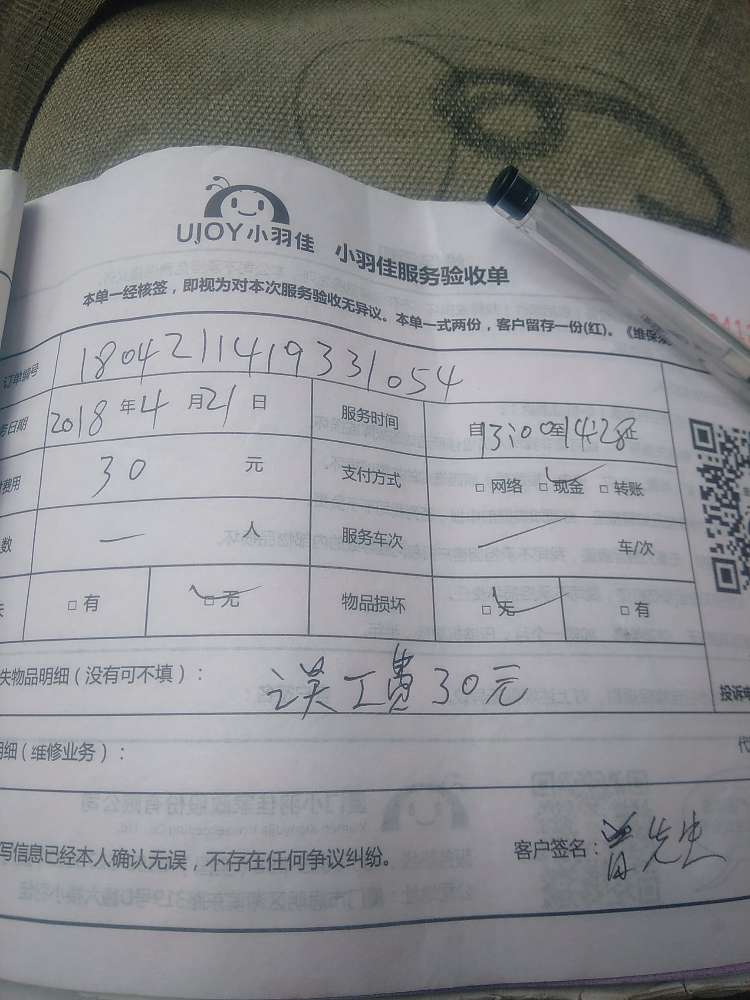 UJOY小羽佳 小羽佳服务验收单
本单一经核签，即视为对本次服务验收无异议。本单一式两份，客户留存一份(红)。《维保
订单编号 180421141933１054
务日期 2018 年 4 月 21 日 服务时间 自13:00至14:28止
费用 30 元 支付方式 □ 网络 □ 现金 □ 转账
数 一 人 服务车次 车/次
失 □ 有 □ 无 物品损坏 □ 无 □ 有
失物品明细（没有可不填）： 误工费30元
投诉电
明细（维修业务）：
代
写信息已经本人确认无误，不存在任何争议纠纷。 客户签名：曾先生